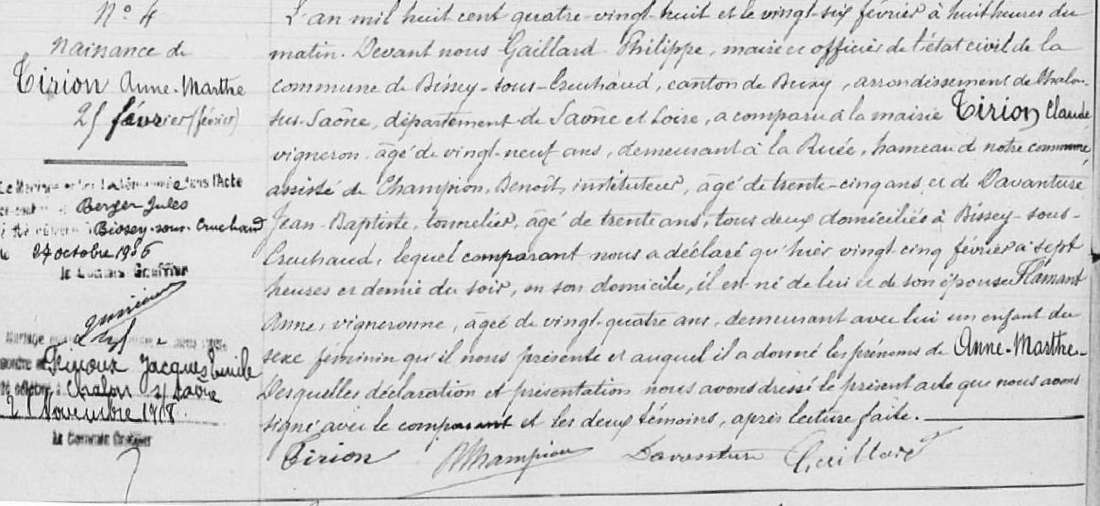 N° 4
Naissance de
Tirion Anne-Marthe
25 février (février)
Le Mariage dans l'Acte
Berger Jules
Bissey-sous-Cruchaud
le 27 octobre 1906
le Commis Greffier
Mariage
Jacques Emile
Chalon s/ Saône
2 Novembre 1918.
Le Commis Greffier
L'an mil huit cent quatre-vingt-huit et le vingt-six février à huit heures du
matin. Devant nous Gaillard Philippe, maire et officier de l'état civil de la
commune de Bissey-sous-Cruchaud, canton de Buxy, arrondissement de Chalon-
sur-Saône, département de Saône et Loire, a comparu à la mairie Tirion Claude
vigneron, âgé de vingt-neuf ans, demeurant à la Ruée, hameau de notre commune,
assisté de Champion, Benoît, instituteur, âgé de trente-cinq ans, et de Davanture
Jean-Baptiste, tonnelier, âgé de trente ans, tous deux domiciliés à Bissey-sous-
Cruchaud, lequel comparant nous a déclaré qu'hier vingt-cinq février à sept
heures et demie du soir, en son domicile, il est né de lui et de son épouse Flamant
Anne, vigneronne, âgée de vingt-quatre ans, demeurant avec lui un enfant du
sexe féminin qu'il nous présente et auquel il a donné les prénoms de Anne-Marthe-
Desquelles déclaration et présentation nous avons dressé le présent acte que nous avons
signé avec le comparant et les deux témoins, après lecture faite.
Tirion Champion Davanture Gaillard